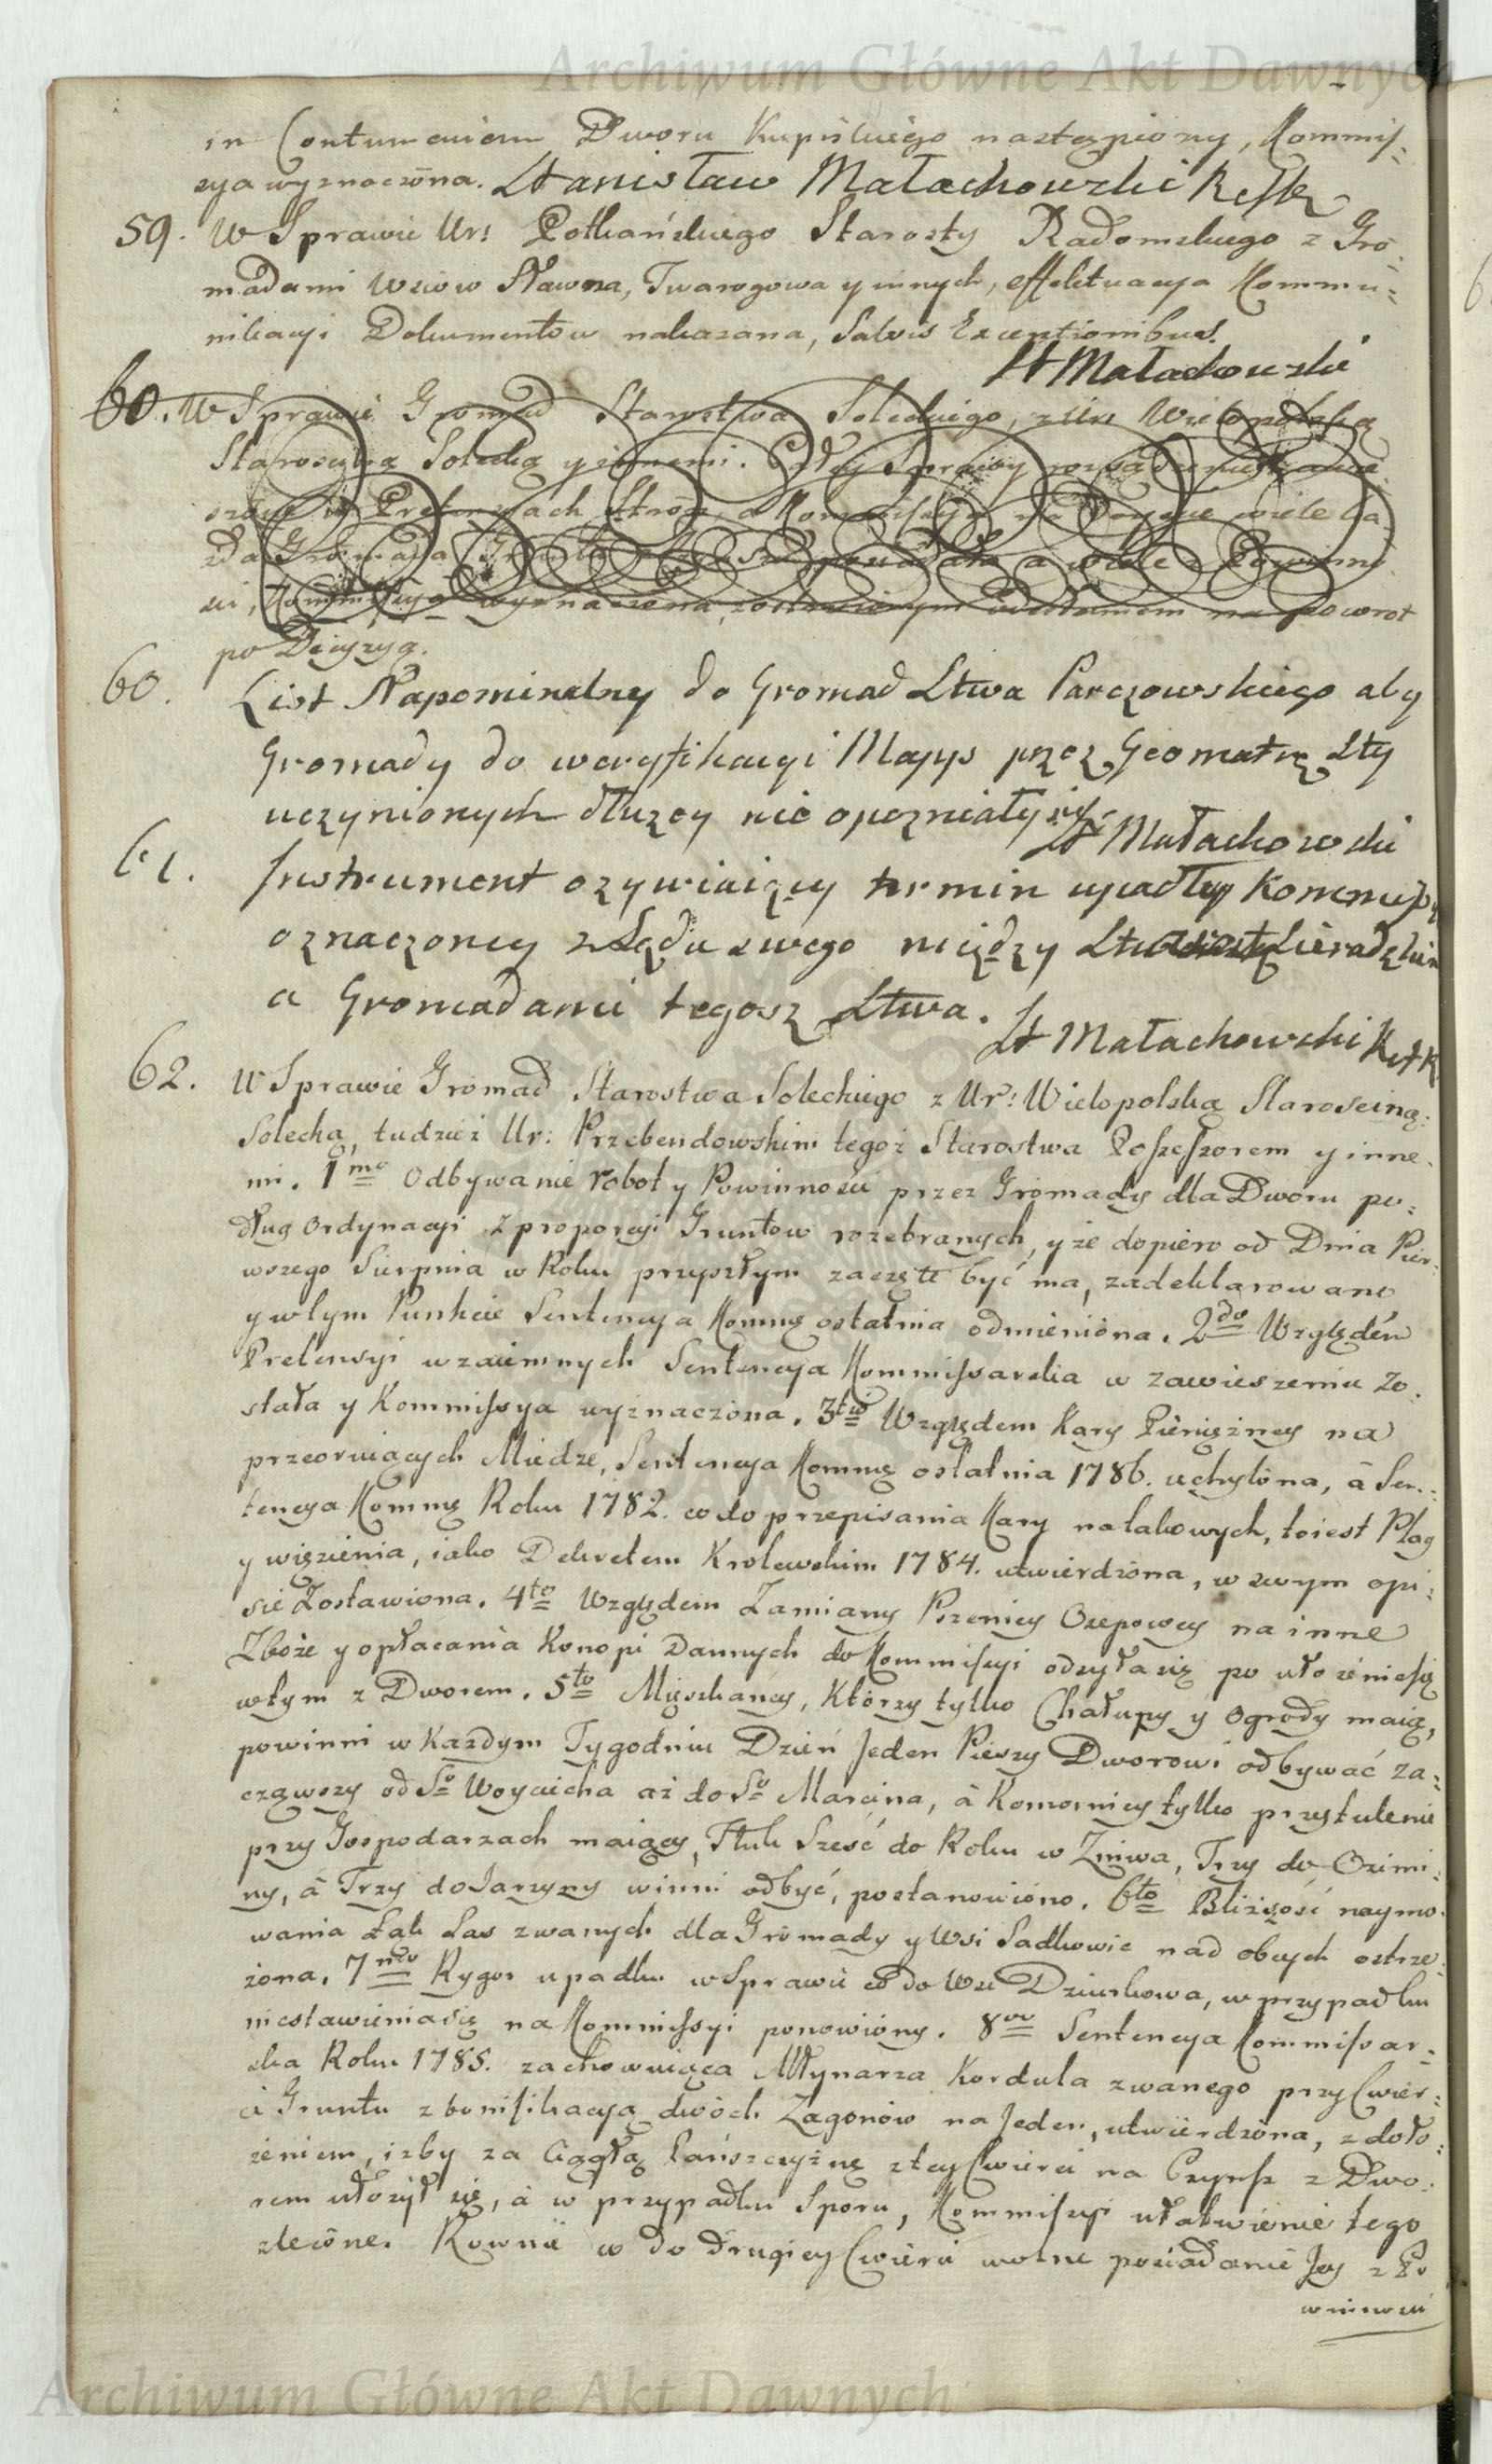 Archiwum Główne Akt Dawnych
in Contumaciam Dworu Kupiskiego nastąpiony, Kommis=
sya wyznaczona. Stanisław Małachowski
59. W Sprawie Ur: Potkańskiego Starosty Radomskiego z Gro=
madami Wsiow Sławna, Twarogowa y innych, effektuacya Kommu=
nikacyi Dokumentow nakazana, Salvis Exceptionibus.
St Małachowski
60. W Sprawie Gromad Starostwa Soleckiego, z Ur: Wielopolską
Starościną Solecką y innemi. Całey Sprawy
w Pretensyach Stron, a Kommissya na wiele ka=
żda Gromada Gruntu posiadała a wiele z Powinno
ści, Kommissya wyznaczona, na powrot
po Decyzyą.
60. List Napominalny do Gromad Stwa Parczowskiego aby
Gromady do weryfikacyi Mapps przez Geometrę Stty
uczynionych dłuzey nie opozniały się.
St Małachowski
61. Instrument ozywiaiący termin upadłey Kommissyi
oznaczoney z Sądu swego między Stwa Sieradzkim
a Gromadami tegosz Stwa.
St Małachowski
62. W Sprawie Gromad Starostwa Soleckiego z Ur: Wielopolską Starosciną
Solecką, tudzież Ur: Przebendowskim tegoż Starostwa Possessorem y inne=
mi. 1mo Odbywanie roboty Powinności przez Gromady dla Dworu po=
dług Ordynacyi z proporcyi Gruntow rozebranych, y że dopiero od Dnia Pier=
wszego Sierpnia w Roku przyszłym zaczęte być ma, zadeklarowano
y w tym Punkcie Sentencya Kommę ostatnia odmieniona. 2do Względem
Pretensyi wzaiemnych Sentencya Kommissarska w zawieszeniu zo=
stała y Kommissya wyznaczona. 3tio Względem Kary Pieniężney na
przeoruiących Miedze, Sentencya Kommę ostatnia 1786. uchylona, à Sen=
tencya Kommę Roku 1782. co do przepisania Kary na takowych, toiest Plag
y więzienia, iako Dekretem Krolewskim 1784. utwierdzona, w swym opi=
sie Zostawiona. 4to Względem Zamiany Pszenicy Osepowey na inne
Zboże y opłacania Konopi Dannych do Kommissyi odsyła się po ułożenie się
w tym z Dworem. 5to Mięszkańcy, Którzy tylko Chałupy y Ogrody maią,
powinni w Każdym Tygodniu Dzień Jeden Pieszy Dworowi odbywać za=
cząwszy od So Woyciecha aż do So Marcina, à Komornicy tylko przytulenie
przy Gospodarzach maiący, Tłuk Sześć do Roku w Zniwa, Trzy do Ozimi=
ny, à Trzy do Jarzyny winni odbyć, postanowiono. 6to Bliższość naymo=
wania Łąk Las zwanych dla Gromady y Wsi Sadkowic nad obcych ostrze=
żona. 7mo Rygor upadku w Sprawie co do Wsi Dziurkowa, w przypadku
niestawienia się na Kommissyi ponowiony. 8vo Sentencya Kommissar=
ska Roku 1785. zachowuiąca Młynarza Kordula zwanego przy Cwier=
ci Gruntu z bonifikacyą dwóch Zagonów na Jeden, utwierdzona, z doło=
żeniem, iżby za Ciągłą Pańszczyznę z tey Cwierci na Czynsz z Dwo=
rem ułożył się, à w przypadku Sporu, Kommissyi ułatwienie tego
zlecone. Rownie co do drugiey Cwierci wolne posiadanie Jey z Po
winności
Archiwum Główne Akt Dawnych